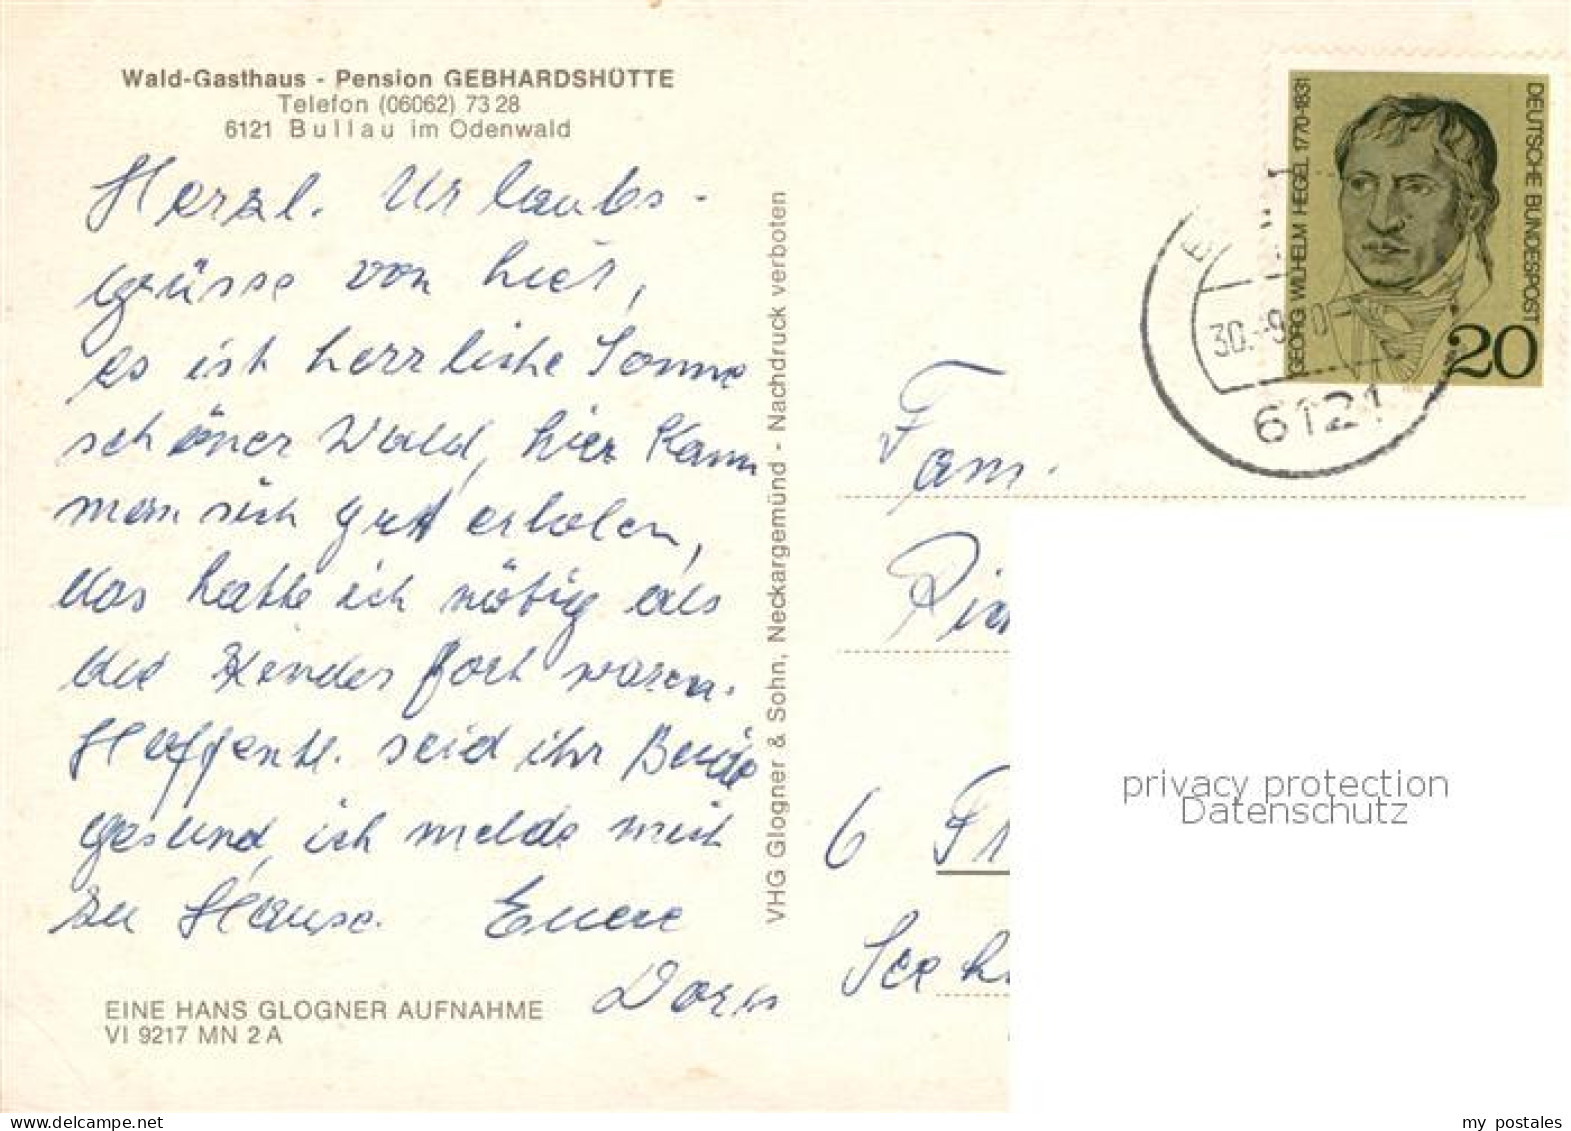 Wald-Gasthaus - Pension GEBHARDSHÜTTE
Telefon (06062) 73 28
6121 Bullau im Odenwald
Herzl. Urlaubs-
grüsse von hier,
es ist herrliche Sonne
schöner Wald, hier kann
man sich gut erholen,
das hatte ich nötig als
die Kinder fort waren.
Hoffentl. seid ihr Beide
gesund, ich melde mich
zu Hause. Euere
Doris
EINE HANS GLOGNER AUFNAHME
VI 9217 MN 2 A
VHG Glogner & Sohn, Neckargemünd - Nachdruck verboten
GEORG WILHELM HEGEL 1770-1831
DEUTSCHE BUNDESPOST
20
30. 9. 0
6121
Fam.
6
privacy protection
Datenschutz
my postales